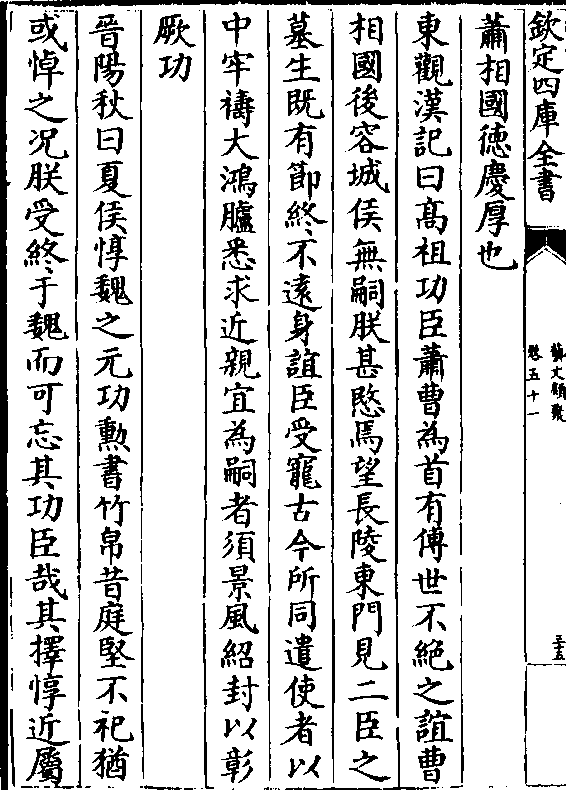 欽定四庫全書
藝文類聚
卷五十一
三五
蕭相國德慶厚也
東觀漢記曰髙祖功臣蕭曹為首有傅世不絶之誼曹
相國後容城侯無嗣朕甚愍焉望長陵東門見二臣之
墓生既有節終不逺身誼臣受寵古今所同遣使者以
中牢禱大鴻臚悉求近親宜為嗣者須景風紹封以彰
厥功
晉陽秋曰夏侯惇魏之元功勲書竹帛昔庭堅不祀猶
或悼之况朕受終于魏而可忘其功臣哉其擇惇近屬